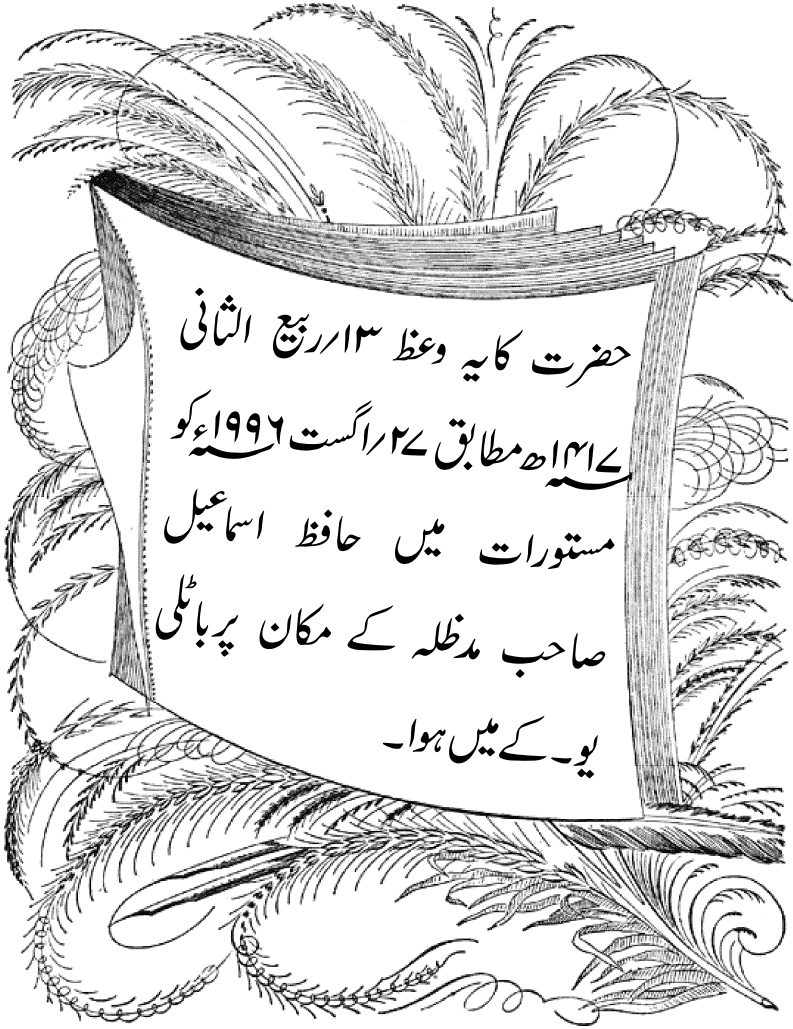 حضرت کا یہ وعظ ۱۳؍ربیع الثانی
۱۴۱۷ھ مطابق ۲۷؍اگست ۱۹۹۶ء کو
مستورات میں حافظ اسماعیل
صاحب مدظلہ کے مکان پر باٹلی
یو۔کے میں ہوا۔